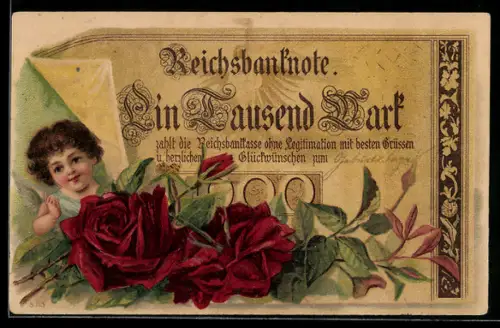 Reichsbanknote.
Ein Tausend Mark
zahlt die Reichsbankkasse ohne Legitimation mit besten Grüssen
u. herzlichen Glückwünschen zum
1000